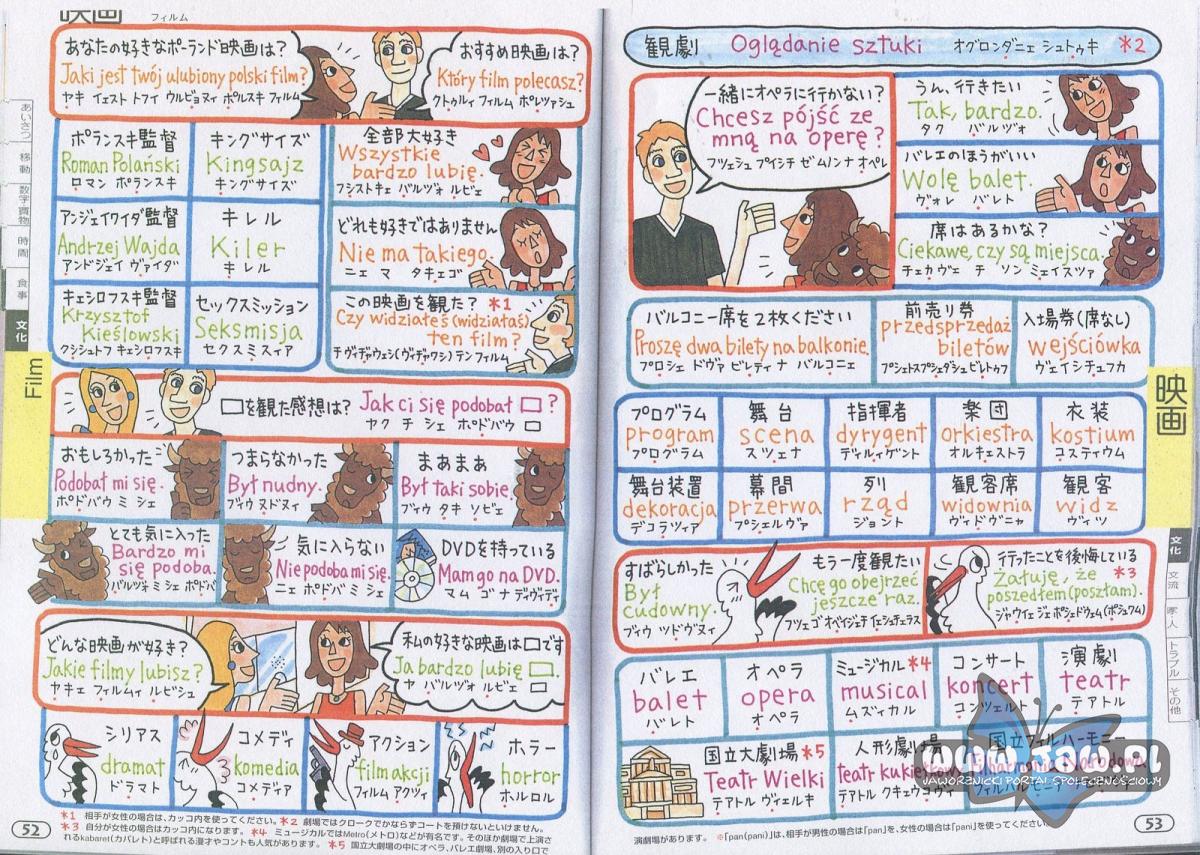 映画 フィルム
あなたの好きなポーランド映画は?
Jaki jest twój ulubiony polski film?
ヤキ イェスト トフイ ウルビョヌィ ポルスキ フィルム
おすすめ映画は?
Który film polecasz?
クトゥルィ フィルム ポレツァシュ
ポランスキ監督
Roman Polański
ロマン ポランスキ
キングサイズ
Kingsajz
キングサイズ
全部大好き
Wszystkie
bardzo lubię.
フシストキェ バルヅォ ルビェ
アンジェイワイダ監督
Andrzej Wajda
アンドジェイ ヴァイダ
キレル
Kiler
キレル
どれも好きではありません
Nie ma takiego.
ニェ マ タキェゴ
キェシロフスキ監督
Krzysztof
Kieślowski
クシシュトフ キェシロフスキ
セックスミッション
Seksmisja
セクスミスィア
この映画を観た? *1
Czy widziałeś (widziałaś)
ten film?
チ ヴィヂャウェシ(ヴィヂャワシ) テン フィルム
□を観た感想は? Jak ci się podobał □?
ヤク チ シェ ポドバウ □
おもしろかった
Podobał mi się.
ポドバウ ミ シェ
つまらなかった
Był nudny.
ブィウ ヌドヌィ
まあまあ
Był taki sobie.
ブィウ タキ ソビェ
とても気に入った
Bardzo mi
się podoba.
バルヅォ ミ シェ ポドバ
気に入らない
Nie podoba mi się.
ニェ ポドバ ミ シェ
DVDを持っている
Mam go na DVD.
マム ゴ ナ ディヴィディ
どんな映画が好き?
Jakie filmy lubisz?
ヤキェ フィルムィ ルビシュ
私の好きな映画は□です
Ja bardzo lubię □.
ヤ バルヅォ ルビェ □
シリアス
dramat
ドラマト
コメディ
komedia
コメディア
アクション
film akcji
フィルム アクツィ
ホラー
horror
ホルロル
*1 相手が女性の場合は、カッコ内を使ってください。 *2 劇場ではクロークでかならずコートを預けないといけません。
*3 自分が女性の場合はカッコ内になります。 *4 ミュージカルではMetro(メトロ)などが有名です。そのほか劇場で上演さ
れるkabaret(カバレト)と呼ばれる漫才やコントも人気があります。 *5 国立大劇場の中にオペラ、バレエ劇場、別の入り口で
52
あいさつ
移動
数字 買物
時間
食事
文化
Film
観劇 Oglądanie sztuki オグロンダニェ シュトゥキ *2
一緒にオペラに行かない?
Chcesz pójść ze
mną na operę?
フツェシュ プイシチ ゼ ムノン ナ オペレ
うん、行きたい
Tak, bardzo.
タク バルヅォ
バレエのほうがいい
Wolę balet.
ヴォレ バレト
席はあるかな?
Ciekawe, czy są miejsca.
チェカヴェ チ ソン ミェイスツァ
バルコニー席を2枚ください
Proszę dwa bilety na balkonie.
プロシェ ドヴァ ビレティ ナ バルコニェ
前売り券
przedsprzedaż
biletów
プシェトスプシェダシュ ビレトゥフ
入場券(席なし)
wejściówka
ヴェイシチュフカ
プログラム
program
プログラム
舞台
scena
スツェナ
指揮者
dyrygent
ディルィゲント
楽団
orkiestra
オルキェストラ
衣装
kostium
コスティウム
舞台装置
dekoracja
デコラツィア
幕間
przerwa
プシェルヴァ
列
rząd
ジョント
観客席
widownia
ヴィドヴニャ
観客
widz
ヴィツ
すばらしかった
Był
cudowny.
ブィウ ツドヴヌィ
もう一度観たい
Chcę go obejrzeć
jeszcze raz.
フツェ ゴ オベイジェチ イェシュチェラス
行ったことを後悔している
Żałuję, że *3
poszedłem (poszłam).
ジャウイェ ジェ ポシェドウェム(ポシュワム)
バレエ
balet
バレト
オペラ
opera
オペラ
ミュージカル *4
musical
ムズィカル
コンサート
koncert
コンツェルト
演劇
teatr
テアトル
国立大劇場 *5
Teatr Wielki
テアトル ヴィェルキ
人形劇場
teatr
テアトル クキェウコヴィ
国立フィルハーモニー
Narodowa
演劇場があります。 ※[pan(pani)]は、相手が男性の場合は「pan」を、女性の場合は「pani」を使ってください。
53
映画
文化
トラブル
その他
JAWORZNICKI PORTAL SPOŁECZNOŚCIOWY